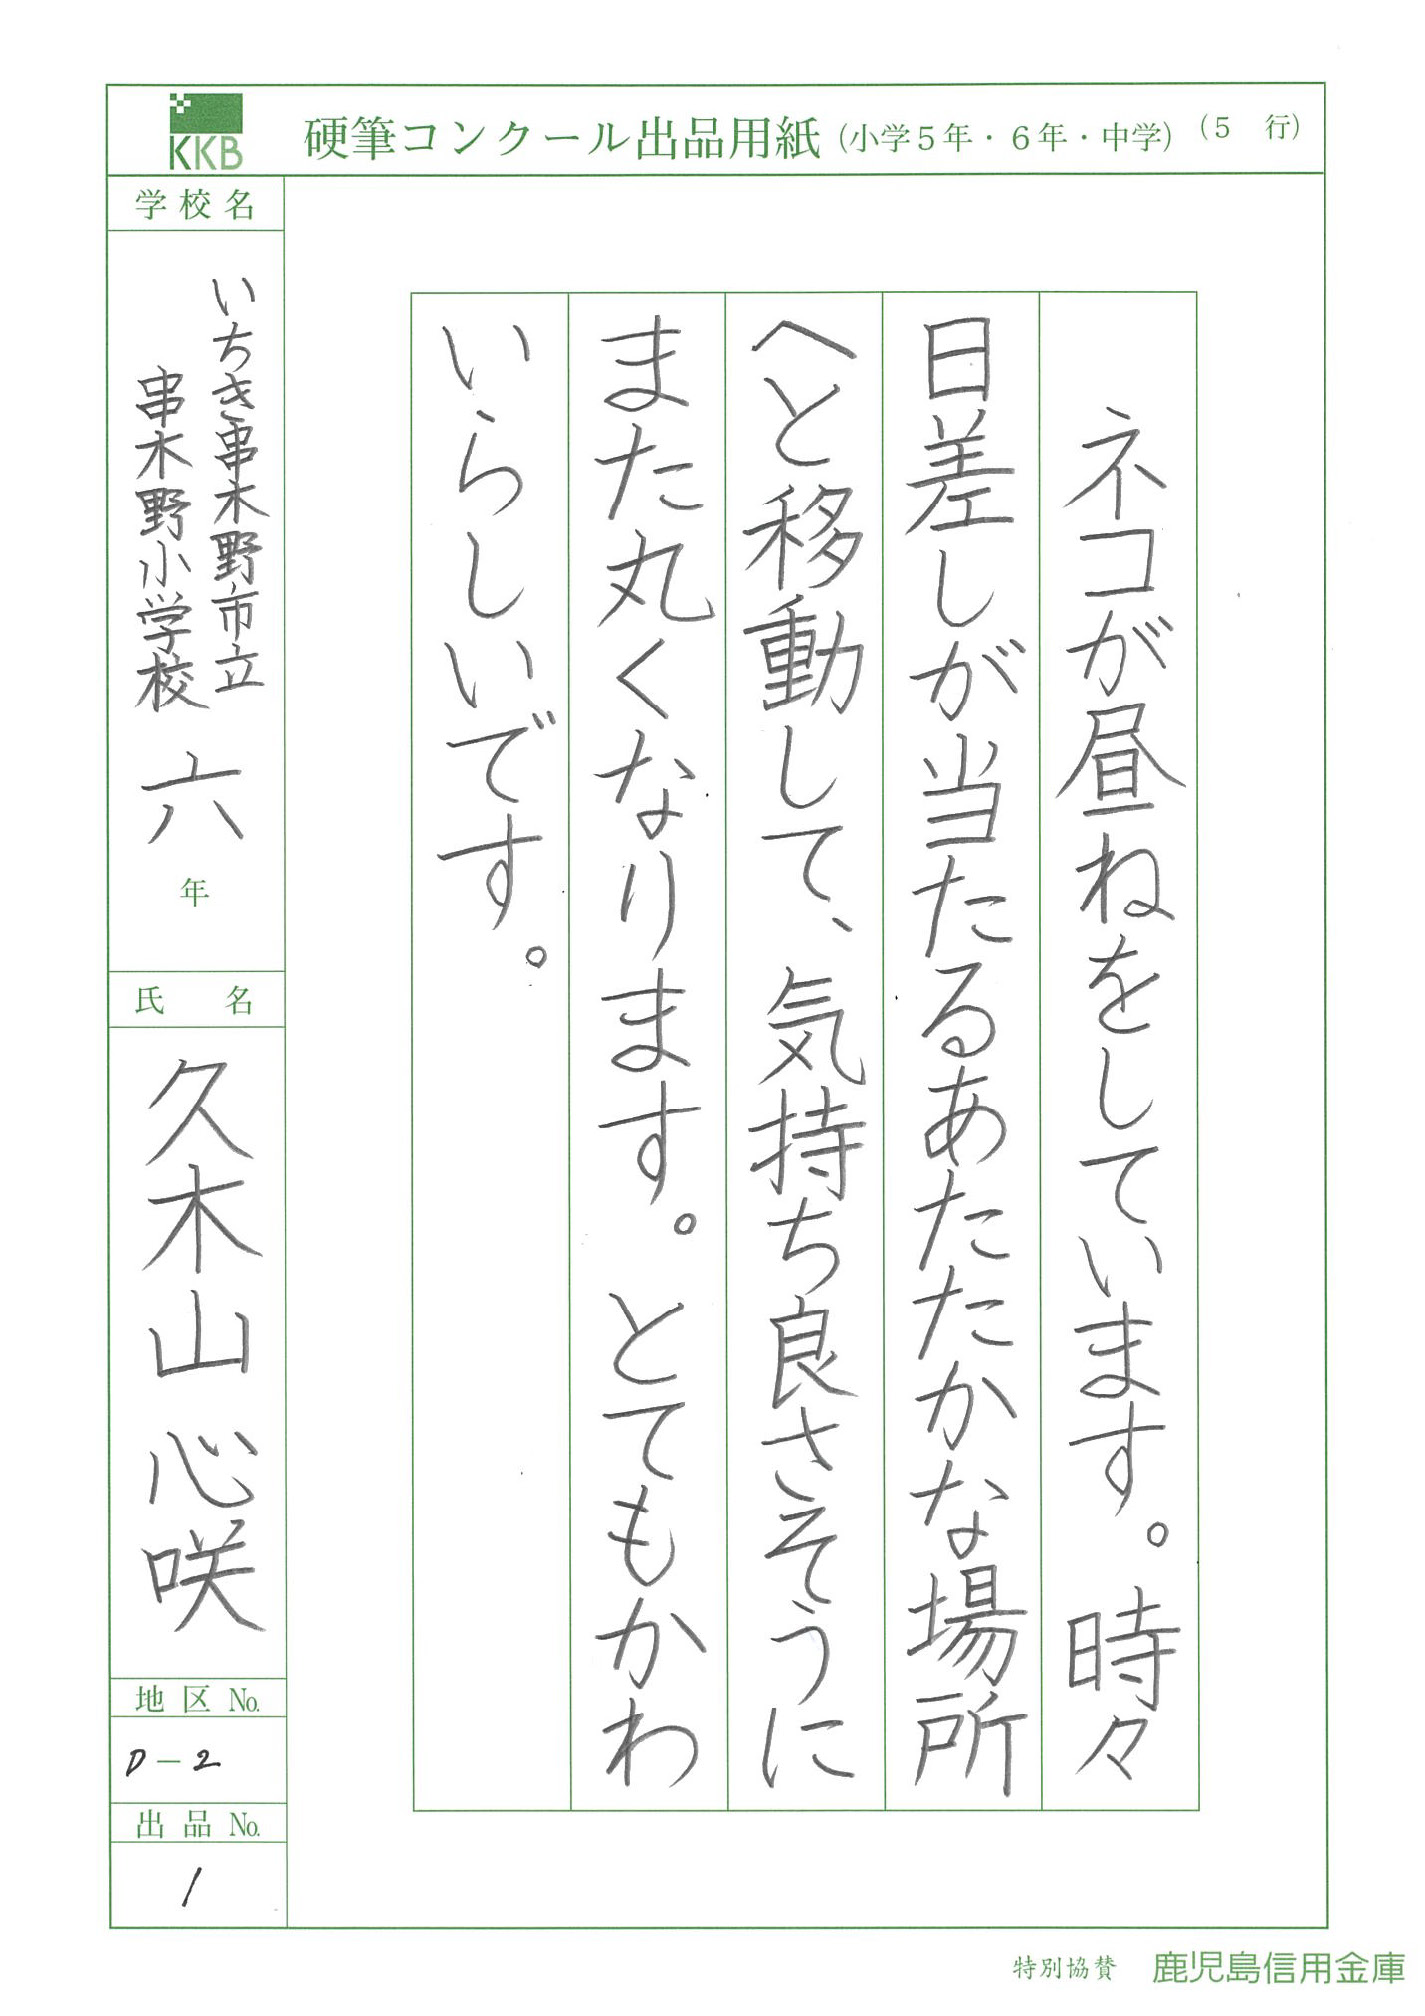 KKB
硬筆コンクール出品用紙(小学5年・6年・中学)(5 行)
ネコが昼ねをしています。時々
日差しが当たるあたたかな場所
へと移動して、気持ち良さそうに
また丸くなります。とてもかわ
いらしいです。
学校名
いちき串木野市立
串木野小学校 六年
氏名
久木山心咲
地区No.
D-2
出品No.
1
特別協賛 鹿児島信用金庫